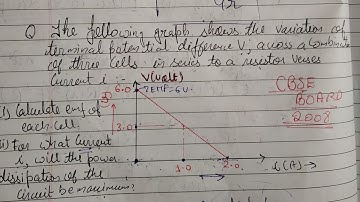 Q The following graph shows the variation of
terminal potential difference V, across a combination
of three Cells in series to a resistor verses
Current i :-
V(volt)
6.0
TEMF = 6V
CBSE
BOARD
2008
(i) Calculate emf of
each cell.
3.0
(ii) For what Current
i, will the power
dissipation of the
Circuit be maximum?
1.0
2.0
i(A) →